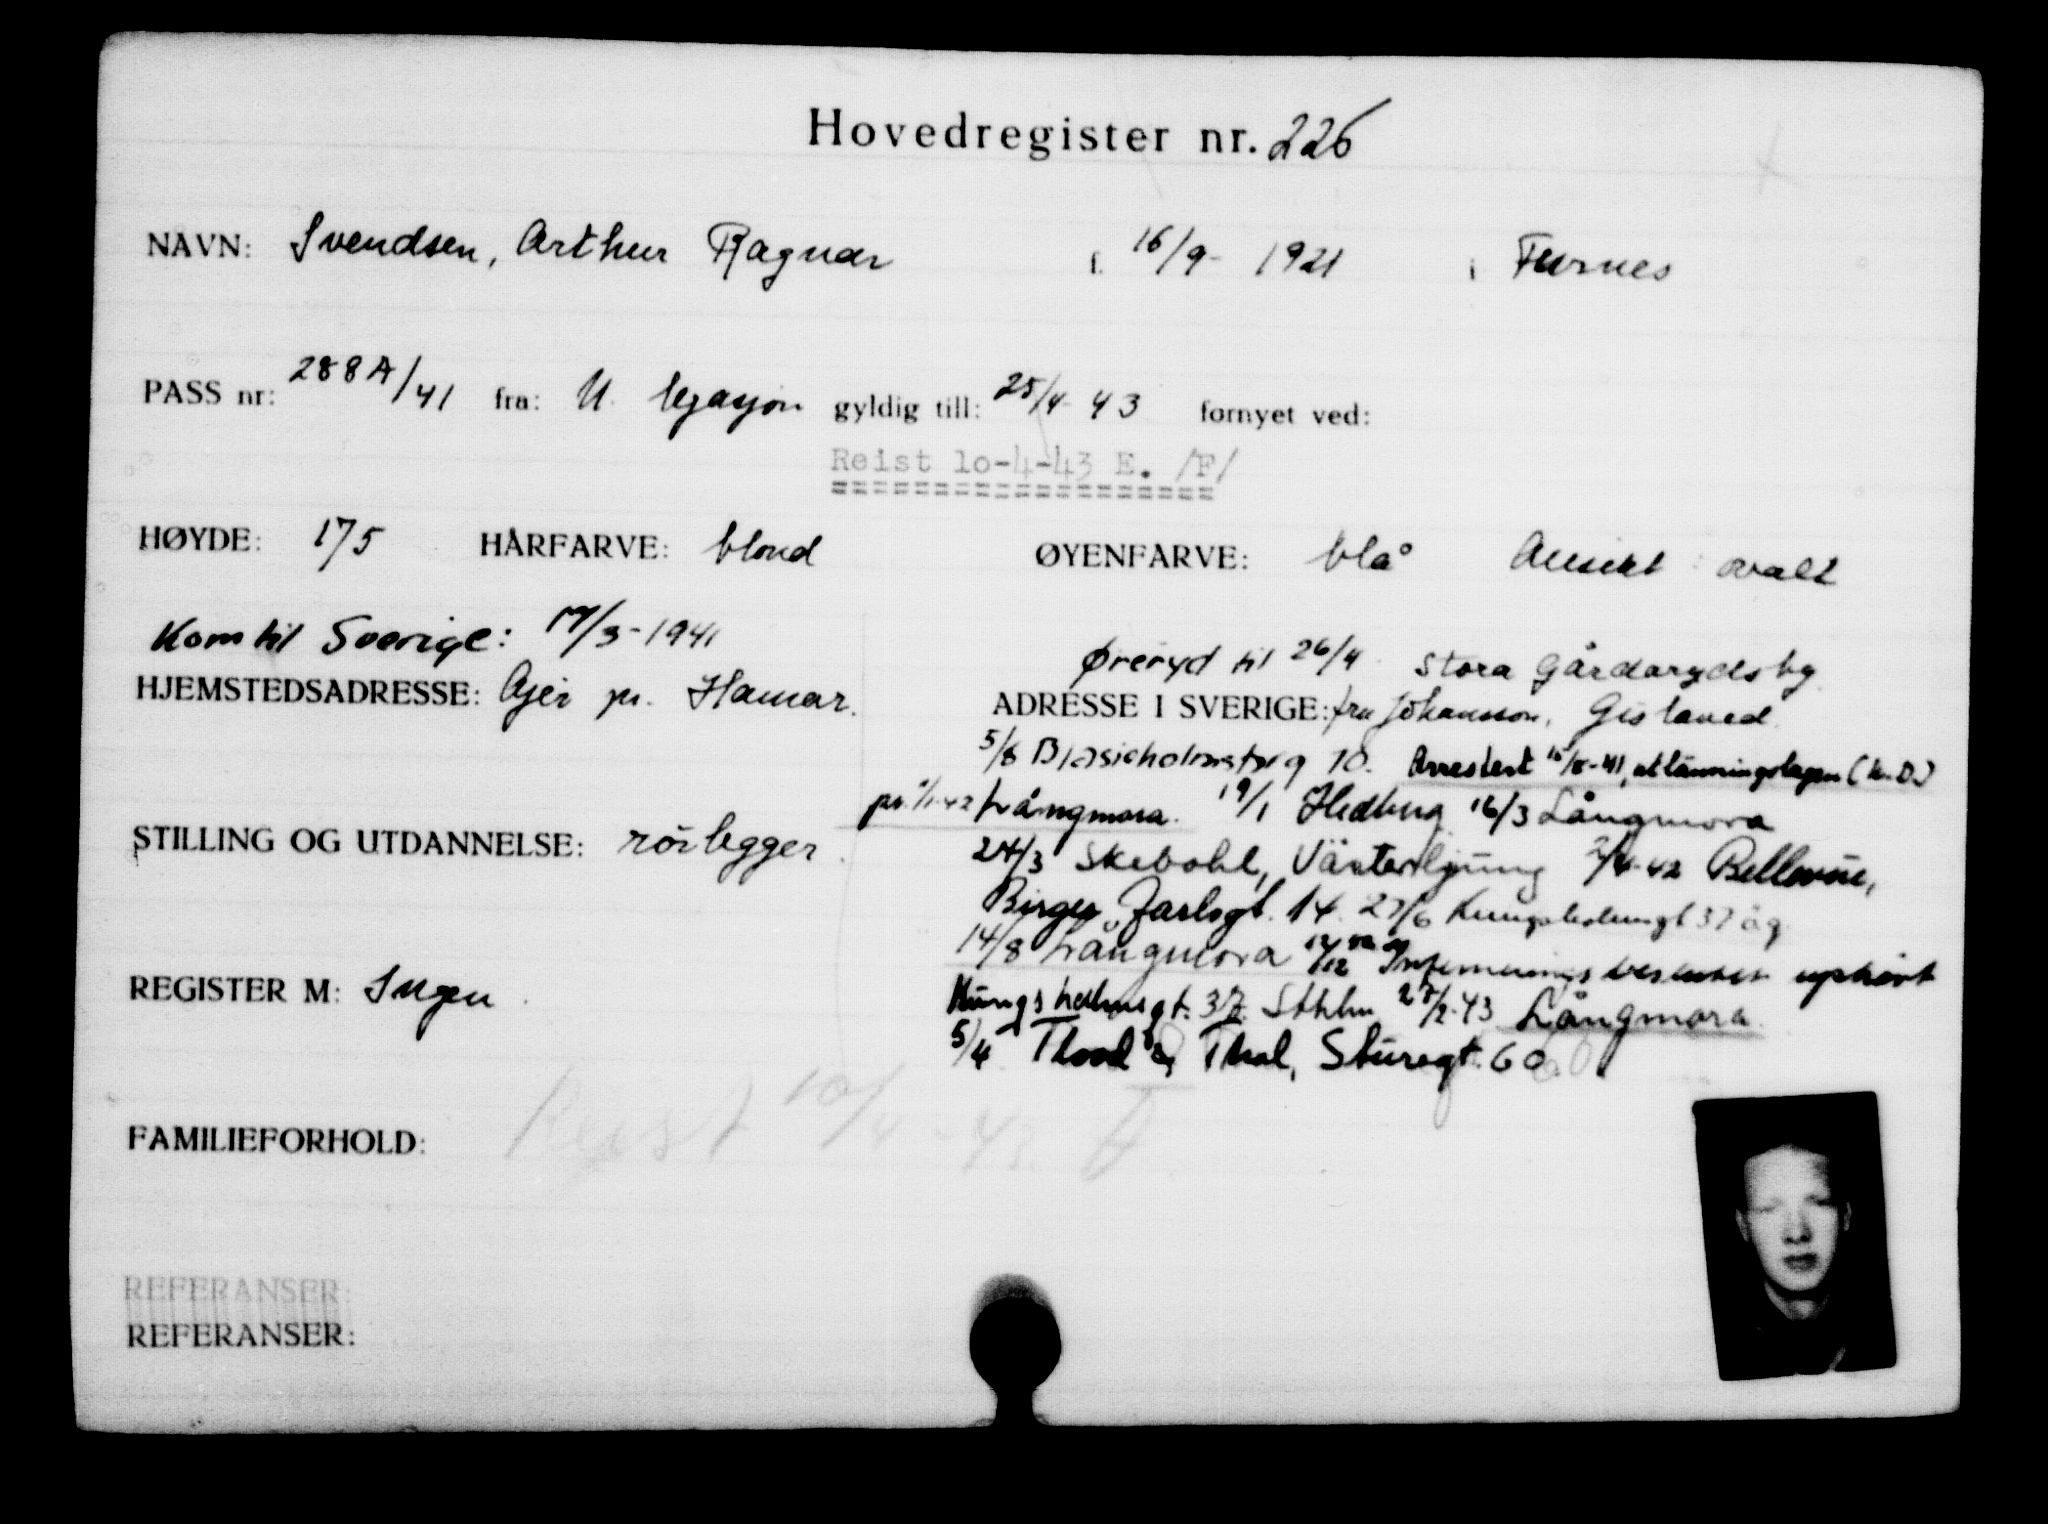 Hovedregister nr. 226
NAVN: Svendsen, Arthur Ragnar f. 16/9- 1921 i Furnes
PASS nr: 288A/41 fra: U. legasjon gyldig till: 25/4- 43 fornyet ved:
Reist lo-4-43 E. /F/
HØYDE: 175 HÅRFARVE: blond ØYENFARVE: blå Ansikt: ovalt
Kom til Sverige: /3-1941
Øreryd til 26/4. Stora Gårdarydsby
HJEMSTEDSADRESSE: Ajer pr. Hamar.
ADRESSE I SVERIGE: fru Johansson, Gislaved.
5/8 Blasieholmstorg 10. Arrestert -41, utlänningslagen (K.D.)
pr. Långmora. 19/1 Hedberg 16/3 Långmora
STILLING OG UTDANNELSE: rörlegger.
24/3 Skebohl, Västerljung -42 Bellevue,
Birger Jarlsgt. 14. 27/6 Kungsholmsgt 37 ög
14/8 Långmora 12/12 Interneringsbeslutet uphört
REGISTER M: Ingen.
Kungsholmsgt. 37 Sthlm 27/2-43 Långmora
5/4 Thod, Sturegt. 60
Reist 10/4-43. F
FAMILIEFORHOLD:
REFERANSER:
REFERANSER: